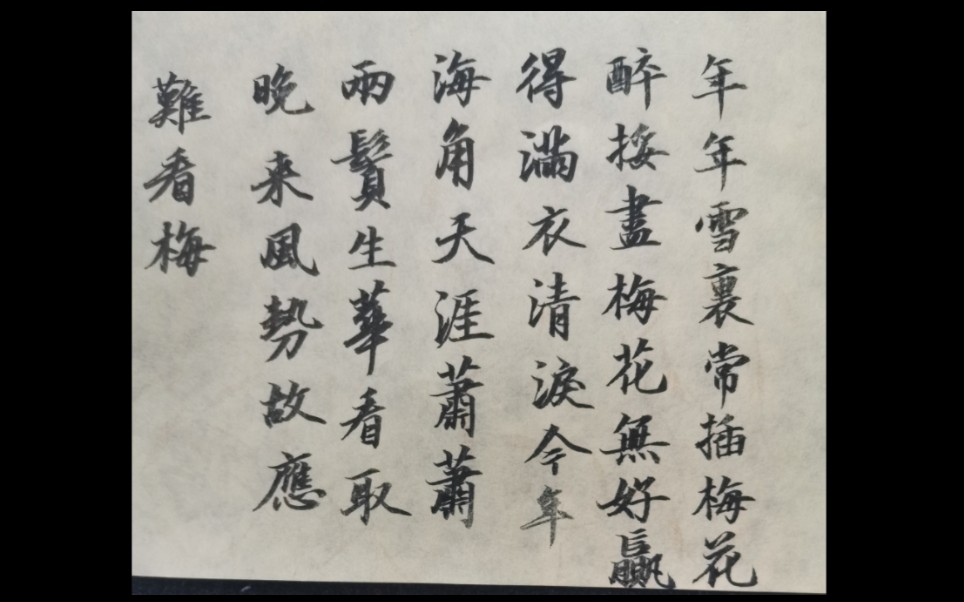 年年雪裏常插梅花
醉挼盡梅花無好贏
得滿衣清淚今年
海角天涯蕭蕭
兩鬢生華看取
晚来風勢故應
難看梅